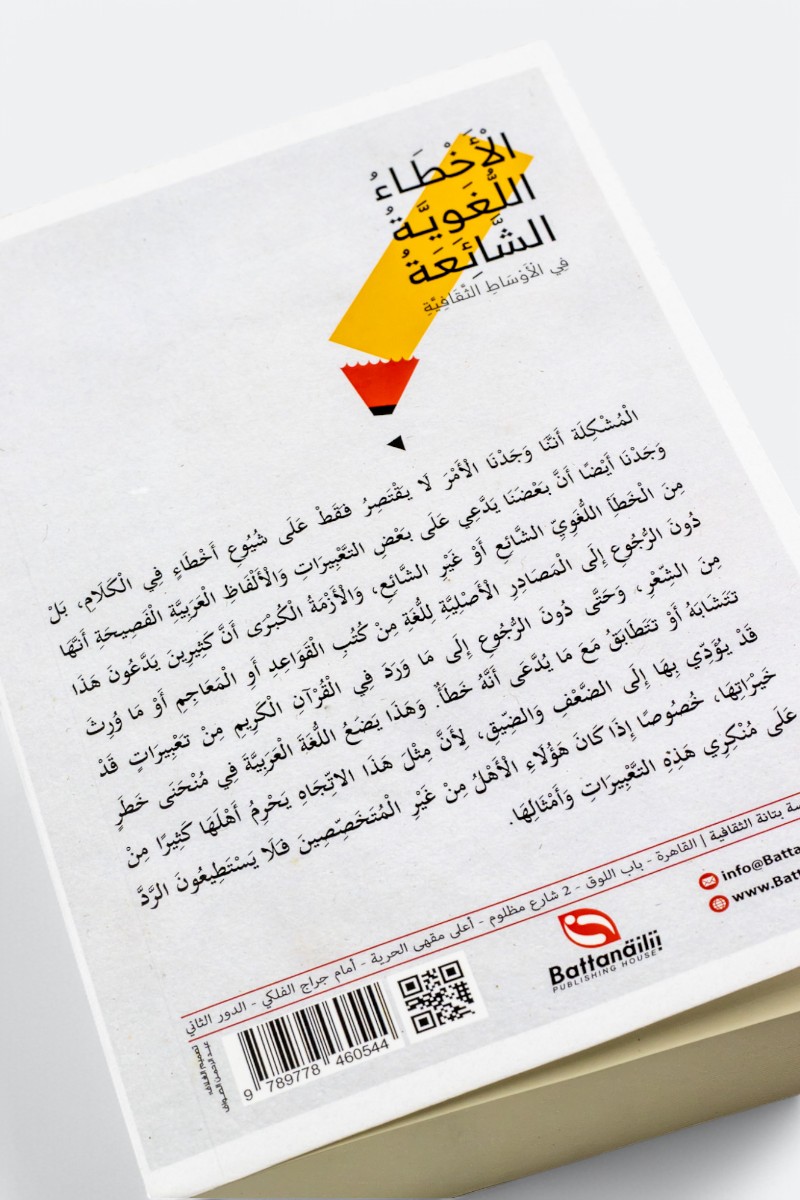 الْأَخْطَاءُ
اللُّغَوِيَّةُ
الشَّائِعَةُ
فِي الْأَوْسَاطِ الثَّقَافِيَّةِ
الْمُشْكِلَة أَنَّنَا وَجَدْنَا الْأَمْرَ لَا يَقْتَصِرُ فَقَطْ عَلَى شُيُوعِ أَخْطَاءٍ فِي الْكَلَامِ، بَلْ
وَجَدْنَا أَيْضًا أَنَّ بَعْضَنَا يَدَّعِي عَلَى بَعْضِ التَّعْبِيرَاتِ وَالْأَلْفَاظِ الْعَرَبِيَّةِ الْفَصِيحَةِ أَنَّهَا
مِنَ الْخَطَأِ اللُّغَوِيِّ الشَّائِعِ أَوْ غَيْرِ الشَّائِعِ، وَالْأَزْمَةُ الْكُبْرَى أَنَّ كَثِيرِينَ يَدَّعُونَ هَذَا
دُونَ الرُّجُوعِ إِلَى الْمَصَادِرِ الْأَصْلِيَّةِ لِلُّغَةِ مِنْ كُتُبِ الْقَوَاعِدِ أَوِ الْمَعَاجِمِ أَوْ مَا وُرِثَ
مِنَ الشِّعْرِ، وَحَتَّى دُونَ الرُّجُوعِ إِلَى مَا وَرَدَ فِي الْقُرْآنِ الْكَرِيمِ مِنْ تَعْبِيرَاتٍ قَدْ
تَتَشَابَهُ أَوْ تَتَطَابَقُ مَعَ مَا يُدَّعَى أَنَّهُ خَطَأٌ. وَهَذَا يَضَعُ اللُّغَةَ الْعَرَبِيَّةَ فِي مُنْحَنَى خَطَرٍ
قَدْ يُؤَدِّي بِهَا إِلَى الضَّعْفِ وَالضِّيقِ، لِأَنَّ مِثْلَ هَذَا الاتِّجَاهِ يَحْرِمُ أَهْلَهَا كَثِيرًا مِنْ
خَيْرَاتِهَا، خُصُوصًا إِذَا كَانَ هَؤُلَاءِ الْأَهْلُ مِنْ غَيْرِ الْمُتَخَصِّصِينَ فَلَا يَسْتَطِيعُونَ الرَّدَّ
عَلَى مُنْكِرِي هَذِهِ التَّعْبِيرَاتِ وَأَمْثَالِهَا.
بتانة الثقافية | القاهرة - باب اللوق - 2 شارع مظلوم - أعلى مقهى الحرية - أمام جراج الفلكي - الدور الثاني
info@Batta
www.Batt
Battanaiiii
PUBLISHING HOUSE
9 789778 460544
تصميم الغلاف